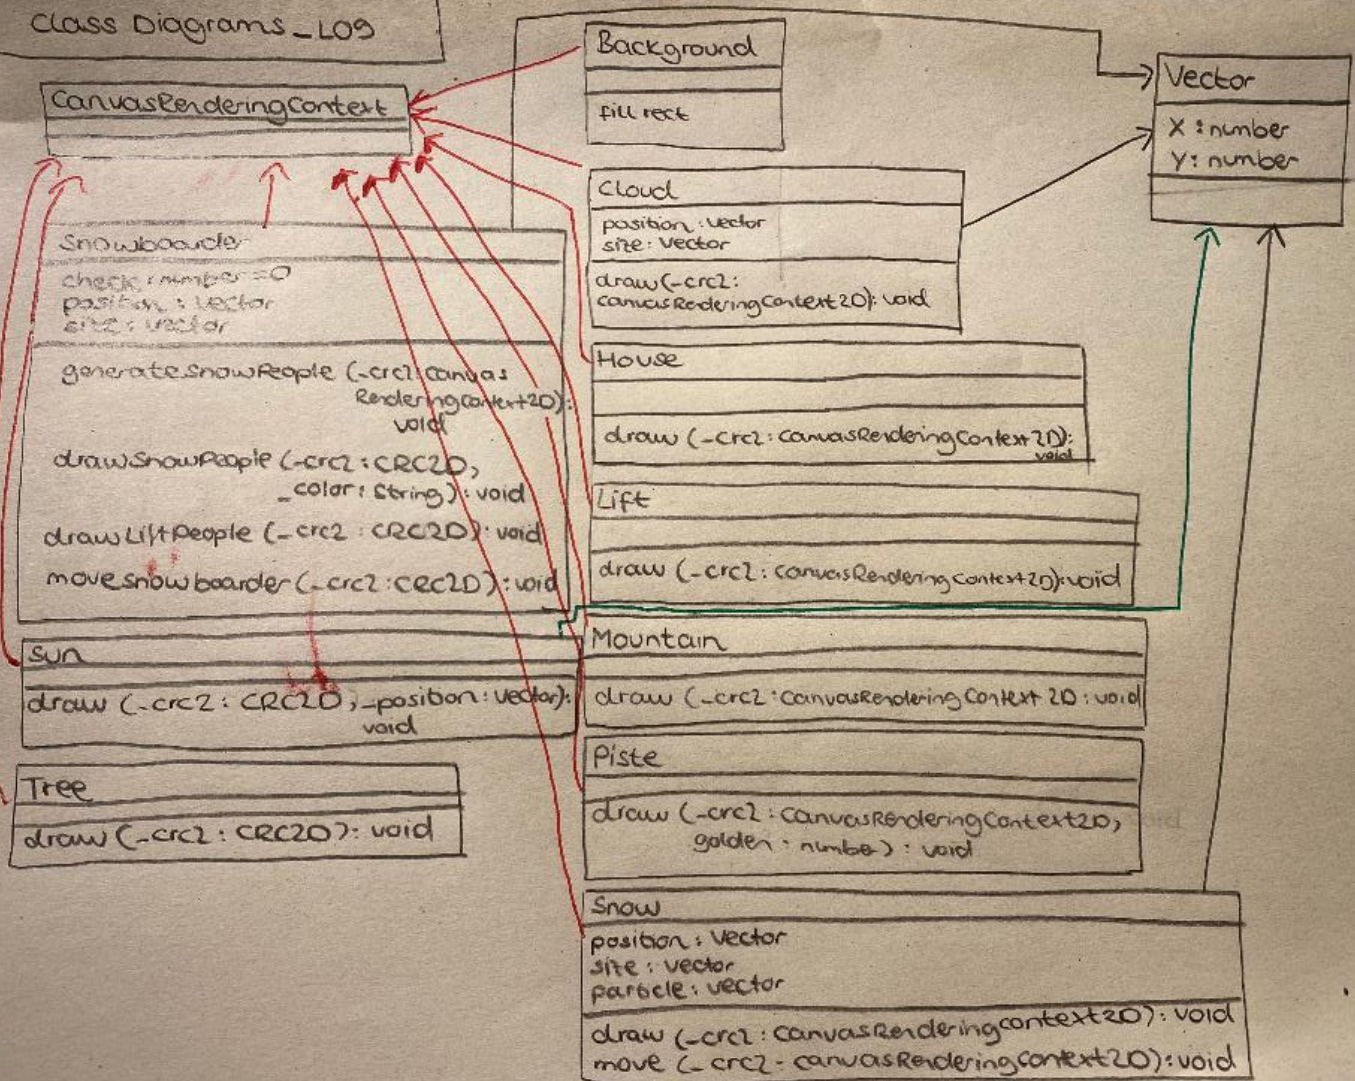 Class Diagrams_L09
CanvasRenderingContext
Snowboarder
check: number = 0
position: vector
size: vector
generateSnowPeople (_crc2: canvas
Renderingcontext2D):
void
drawSnowPeople (_crc2: CRC2D,
_color: String): void
drawLiftPeople (_crc2: CRC2D): void
movesnowboarder (_crc2: CRC2D): void
Sun
draw (_crc2: CRC2D, _position: vector):
void
Tree
draw (_crc2: CRC2D): void
Background
fill rect
Cloud
position: vector
size: vector
draw (_crc2:
canvasRenderingContext2D): void
House
draw (_crc2: CanvasRenderingContext2D):
void
Lift
draw (_crc2: CanvasRenderingContext2D): void
Mountain
draw (_crc2: CanvasRenderingContext 2D: void
Piste
draw (_crc2: CanvasRenderingContext2D,
golden: number): void
Snow
position: vector
size: vector
particle: vector
draw (_crc2: CanvasRenderingcontext2D): void
move (_crc2 - canvasRenderingContext2D): void
Vector
X: number
Y: number